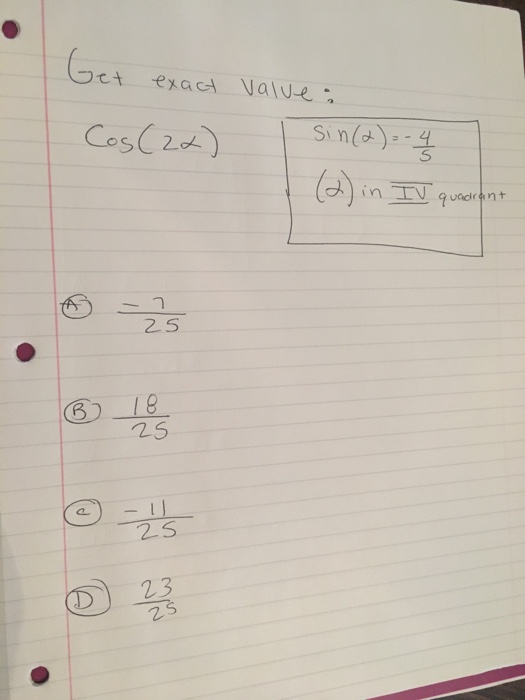 Get exact value:
Cos(2α)
Sin(α) = -4/5
(α) in IV quadrant
A) -7/25
B) 18/25
C) -11/25
D) 23/25